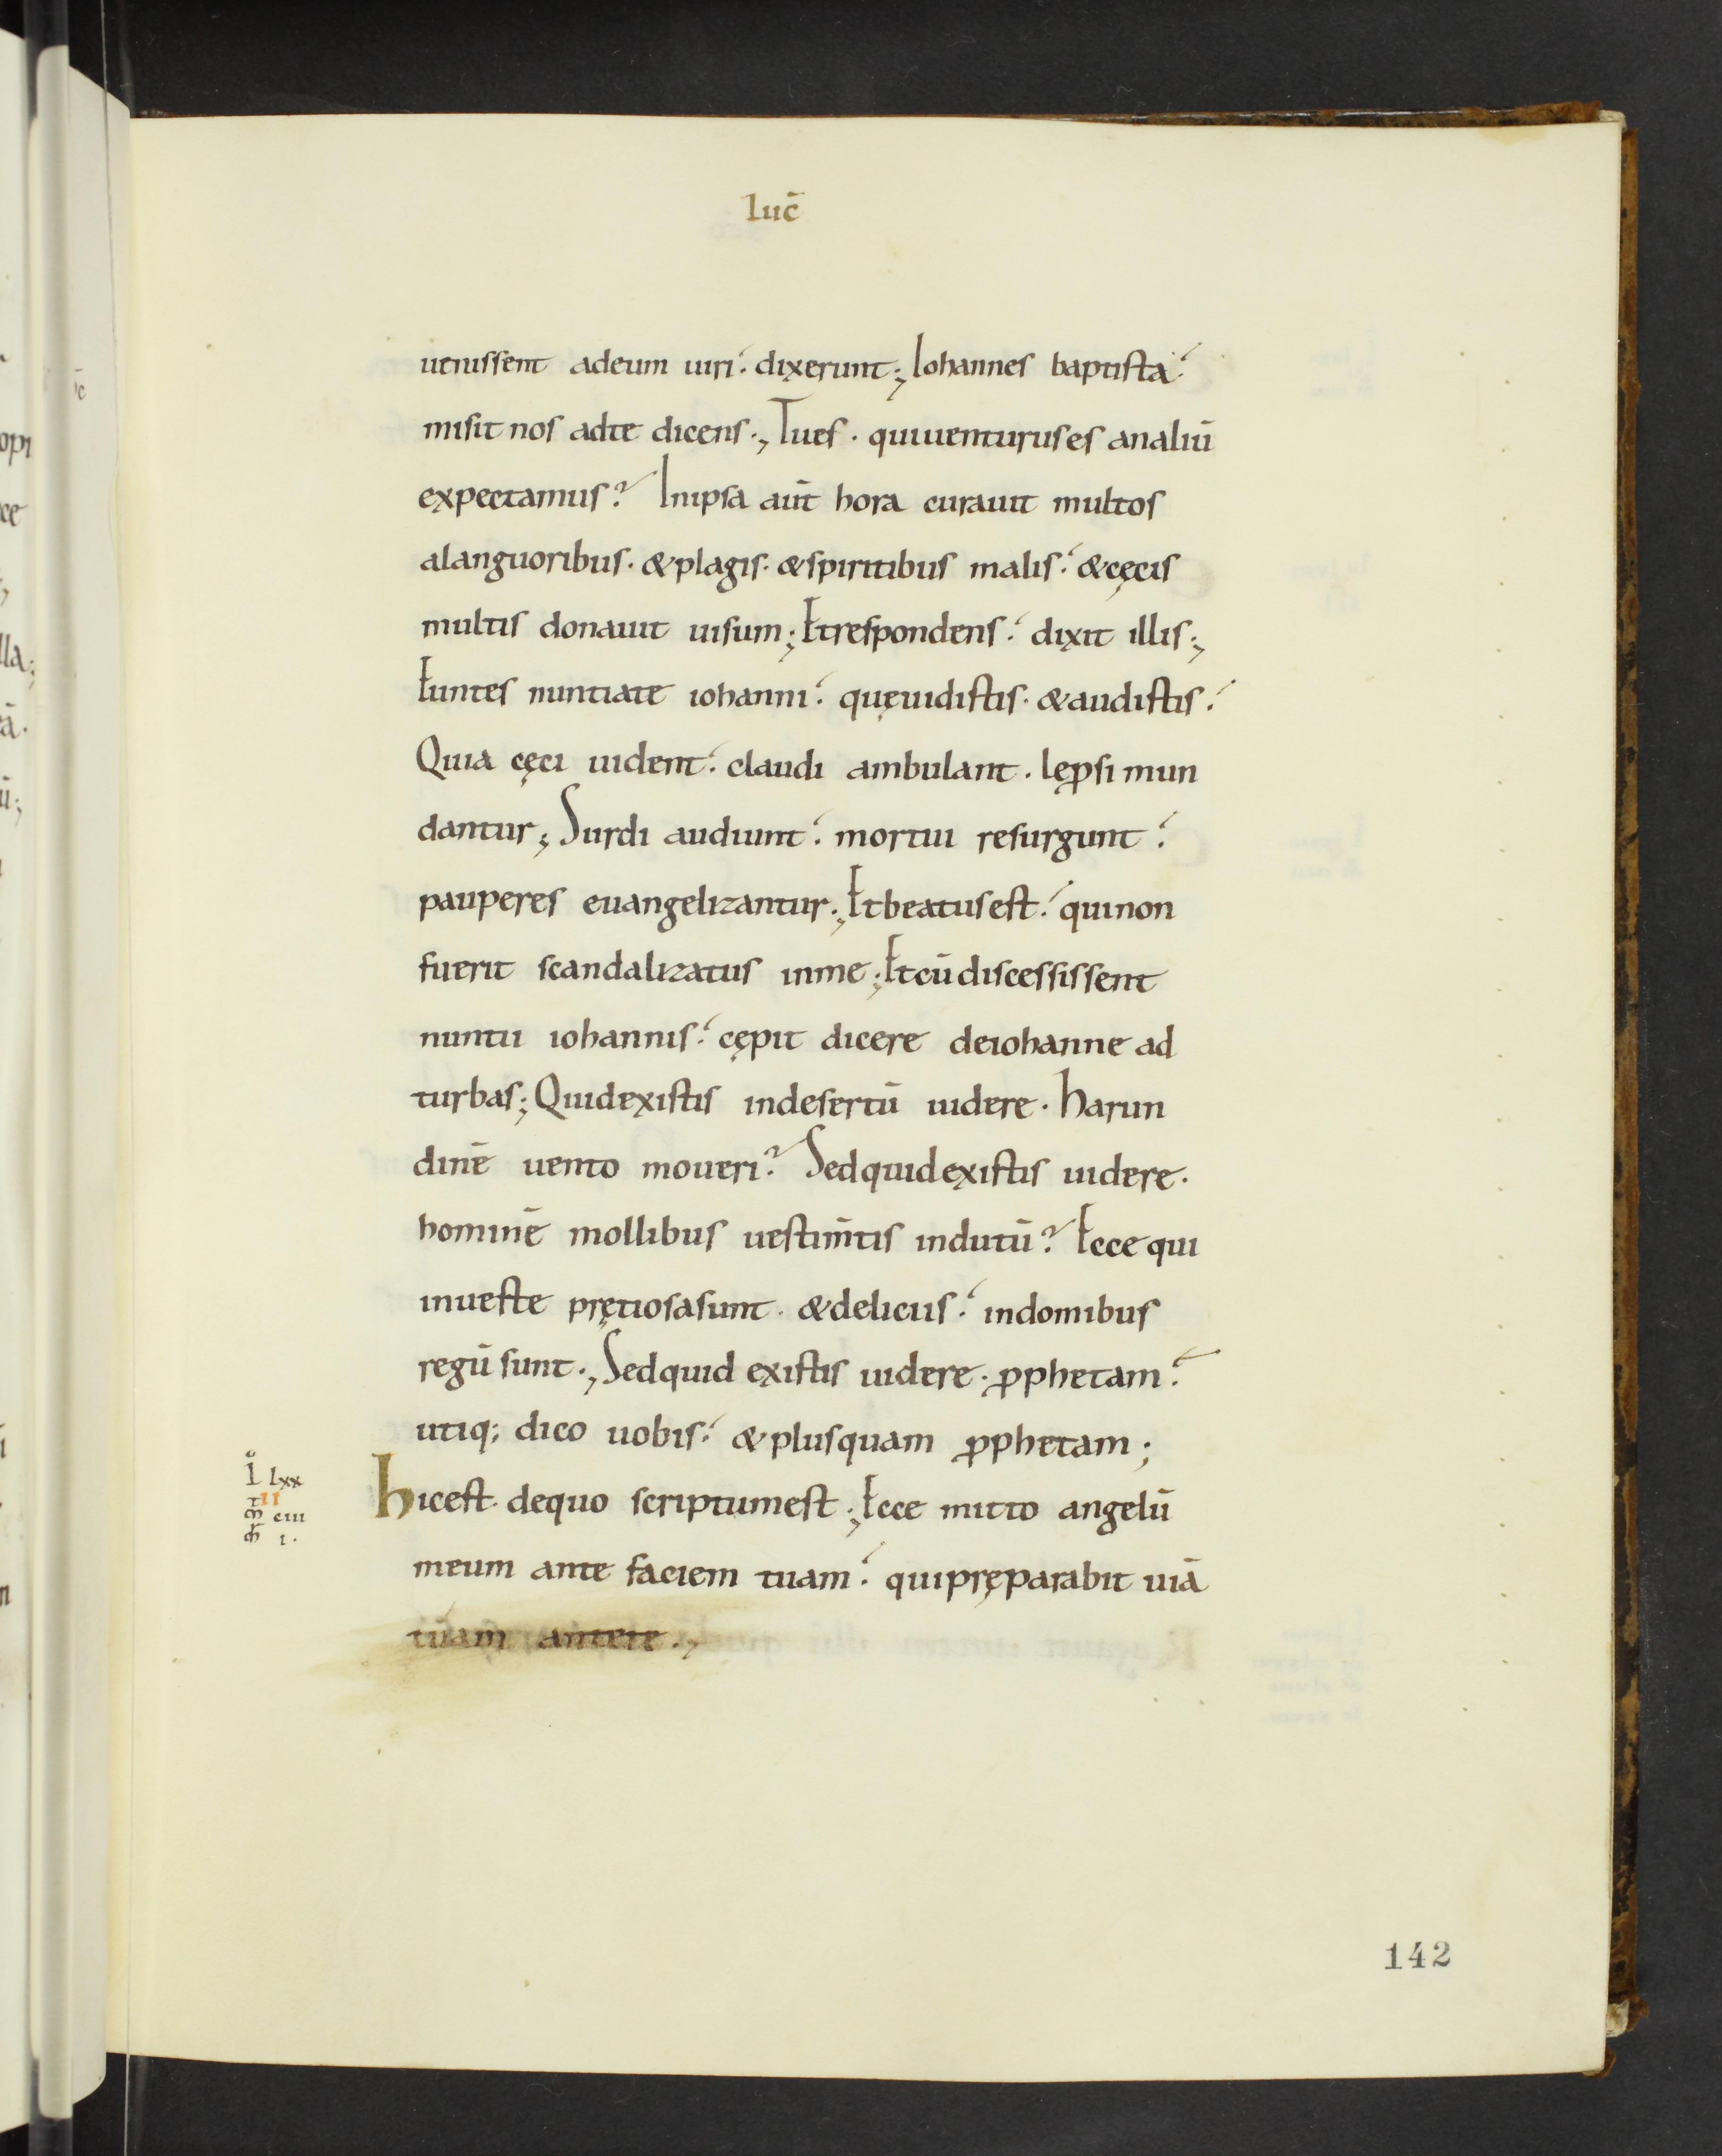 luc̄
uenissent adeum uiri. dixerunt; Iohannes baptista.
misit nos adte dicens., Tues. quiuenturuses analiū
expectamus? Inipsa aūt hora curauit multos
alanguoribus. &plagis. &spiritibus malis. &cęcis
multis donauit uisum; Etrespondens. dixit illis.,
Euntes nuntiate iohanni. quęuidistis. &audistis.
Quia cęci uident. claudi ambulant. leꝓsi mun
dantur; Surdi audiunt. mortui resurgunt.
pauperes euangelizantur; Etbeatusest. quinon
fuerit scandalizatus inme; Etcūdiscessissent
nuntii iohannis. cępit dicere deiohanne ad
turbas; Quidexistis indesertū uidere. harun
dinē uento moueri? Sedquidexistis uidere.
hominē mollibus uestim̄tis indutū? Ecce qui
inueste pretiosasunt. &deliciis. indomibus
regū sunt., Sedquid existis uidere. ꝓphetam.
utiq; dico uobis. &plusquam ꝓphetam;
hicest. dequo scriptumest; Ecce mitto angelū
meum ante faciem tuam. quipręparabit uiā
tuam antete.,
L lxx
II
m̄ ciii
i.
142